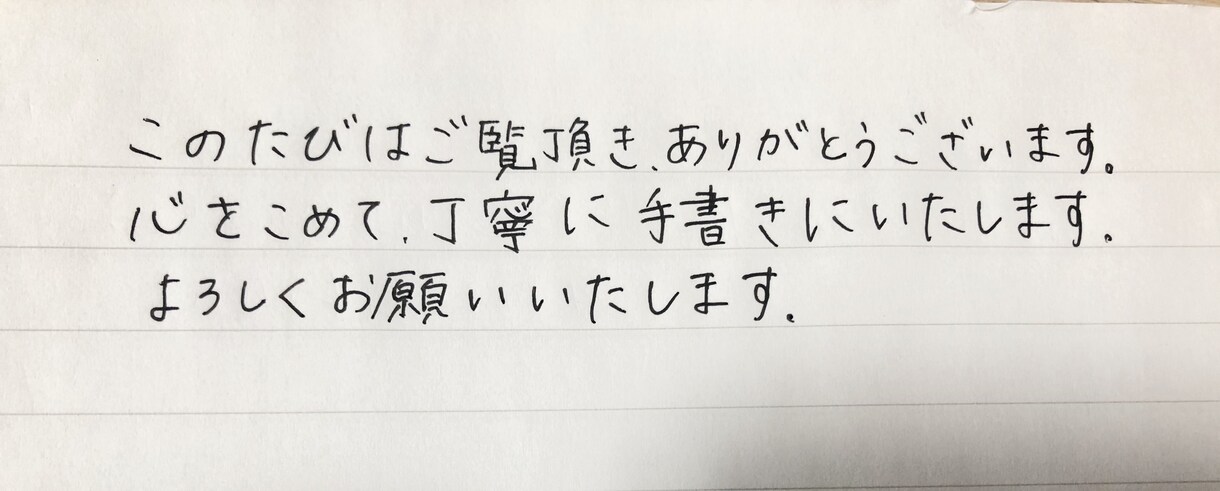 このたびはご覧頂き、ありがとうございます。
心をこめて、丁寧に手書きにいたします。
よろしくお願いいたします。